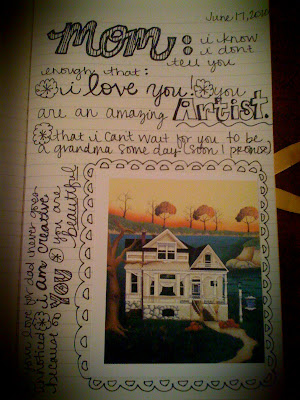 June 17, 2010
mom: i know
i dont
tell you
enough that:
i love you! you
are an amazing Artist.
that i cant wait for you to be
a grandma some day (soon i promise)
your love for dad never goes
unnoticed i am creative
because of YOU you are
beautiful